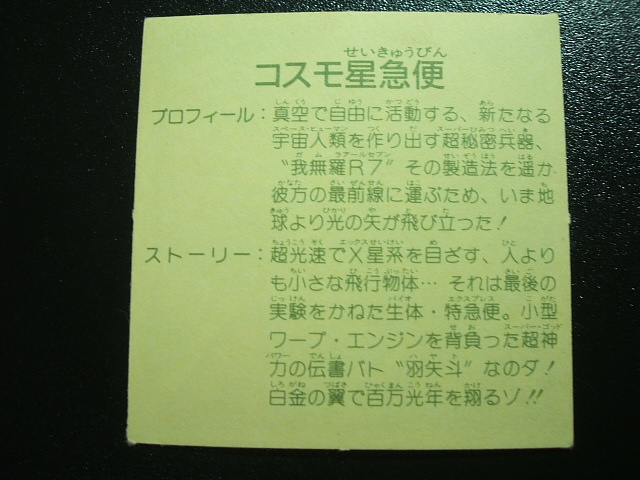 せいきゅうびん
コスモ星急便
プロフィール：真空で自由に活動する、新たなる
宇宙人類を作り出す超秘密兵器、
“我無羅R7” その製造法を遥か
彼方の最前線に運ぶため、いま地
球より光の矢が飛び立った！
ストーリー：超光速でX星系を目ざす、人より
も小さな飛行物体… それは最後の
実験をかねた生体・特急便。小型
ワープ・エンジンを背負った超神
力の伝書バト “羽矢斗” なのダ！
白金の翼で百万光年を翔るゾ！！